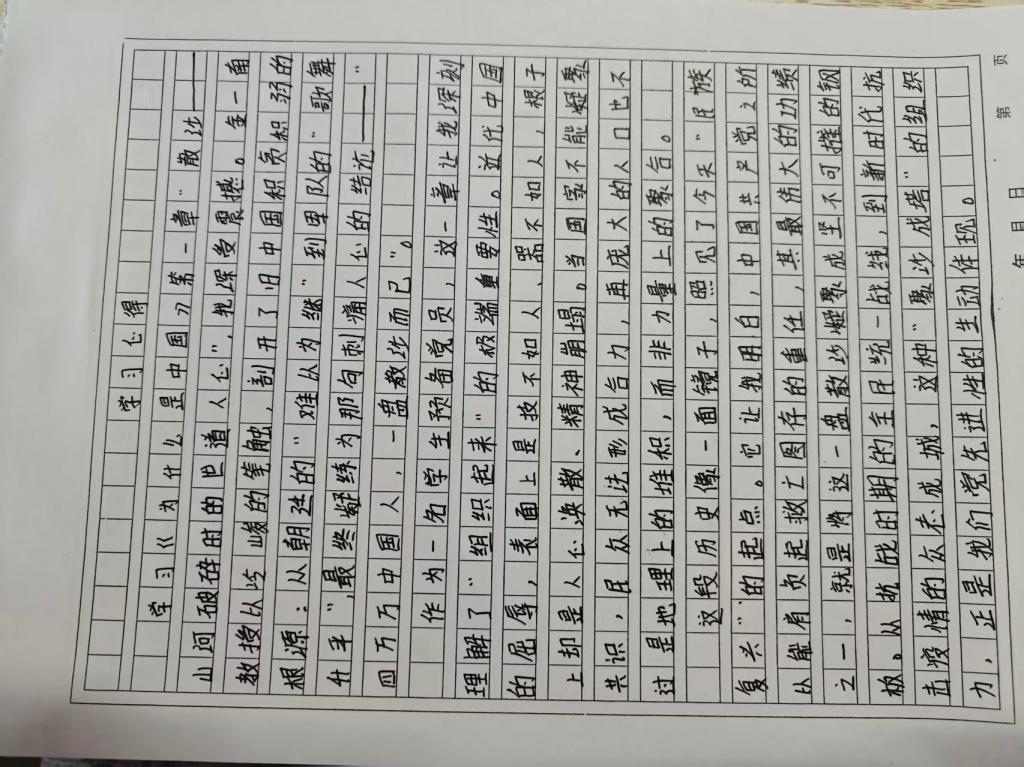 学习心得
学习《为什么是中国》第一章"散沙——
山河破碎时的世道人心",我深受震撼。金一南
教授以冷峻的笔触,剖开了旧中国积贫积弱的
根源:从朝廷的"难以为继"到军队的"歌舞
升平",最终凝练为那句刺痛人心的结论——"
四万万中国人,一盘散沙而已"。
作为一名学生预备党员,这一章让我深刻
理解了"组织起来"的极端重要性。近代中国
的屈辱,表面上是技不如人、器不如人,根子
上却是人心涣散、精神崩塌。当国家不能凝聚
共识,民众无法形成合力,再庞大的人口也不
过是地理上的堆积,而非力量上的聚合。
这段历史像一面镜子,照见了今天"民族
复兴"的起点。它让我明白,中国共产党之所
以能肩负起救亡图存的重任,其最伟大的功绩
之一,就是将这一盘散沙凝聚成坚不可摧的钢
板。从抗战时期的全民统一战线,到新时代抗
击疫情的众志成城,这种"聚沙成塔"的组织
力,正是我们党先进性的生动体现。
年 月 日
第 页